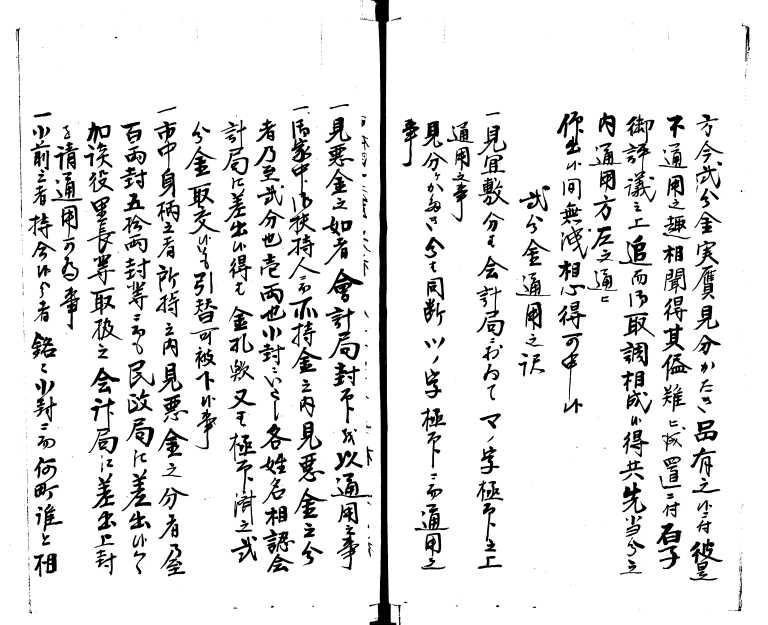 方今弐分金実贋見分かたき品有之候ニ付彼是
不通用之趣相聞得其儘難被成置ニ付石子
御評議之上追而御取調相成候得共先当分之
内通用方左之通ニ
作出候間無減相心得可申候
弐分金通用之訳
一見宜敷分ハ会計局ニおゐてマノ字極印之上
通用之事
見分ケかたき分も同断ツノ字極印ニ而通用之
事
一見悪金之如者會計局封印ヲ以通用之事
一御家中御扶持人ニ而所持金之内見悪金之分
者乃至弐分也壱両也小封ニいたし各姓名相認会
計局江差出候得は金札歟又は極印済之弐
分金取交候而引替可被下候事
一市中身柄之者所持之内見悪金之分者乃至
百両封五拾両封等ニ而も民政局江差出候ハヽ
加談役里長等取扱之会計局江差出上封
を請通用可為事
一小前之者持合候分者銘々小封ニ而何町誰と相